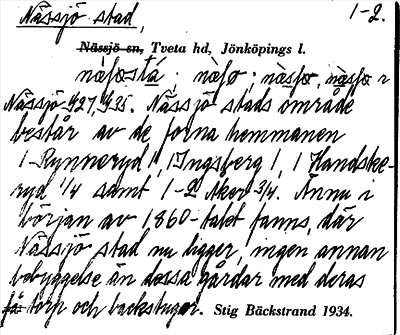 Nässjö stad, 1-2.
Nässjö sn, Tveta hd, Jönköpings l.
Nässjö 4/27, 4/35. Nässjö stads område
består av de forna hemmanen
1 Rynneryd 1, 1 Ingsberg 1, 1 Handske-
ryd 1/4 samt 1-2 Åker 3/4. Ännu i
början av 1860-talet fanns, där
Nässjö stad nu ligger, ingen annan
bebyggelse än dessa gårdar med deras
få torp och backstugor. Stig Bäckstrand 1934.